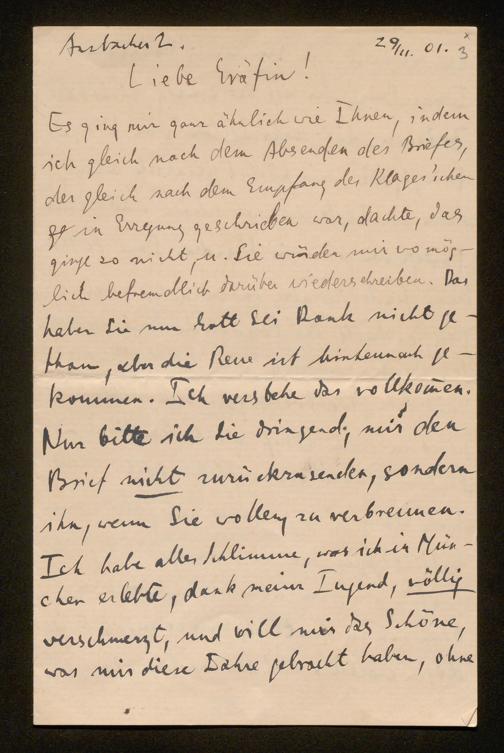 Ansbacher 2.
29/11. 01. 3
Liebe Gräfin!
Es ging mir ganz ähnlich wie Ihnen, indem
ich gleich nach dem Absenden des Briefes,
der gleich nach dem Empfang des Klages'schen
in Erregung geschrieben war, dachte, das
ginge so nicht, u. Sie würden mir womög-
lich befremdlich darüber wiederschreiben. Das
haben Sie nun Gott Sei Dank nicht ge-
than, aber die Reue ist hintennach ge-
kommen. Ich verstehe das vollkom̅en.
Nur bitte ich Sie dringend, mir den
Brief nicht zurückzusenden, sondern
ihn, wenn Sie wollen, zu verbrennen.
Ich habe alles Schlimme, was ich in Mün-
chen erlebte, dank meiner Jugend, völlig
verschmerzt, und will mir das Schöne,
was mir diese Jahre gebracht haben, ohne